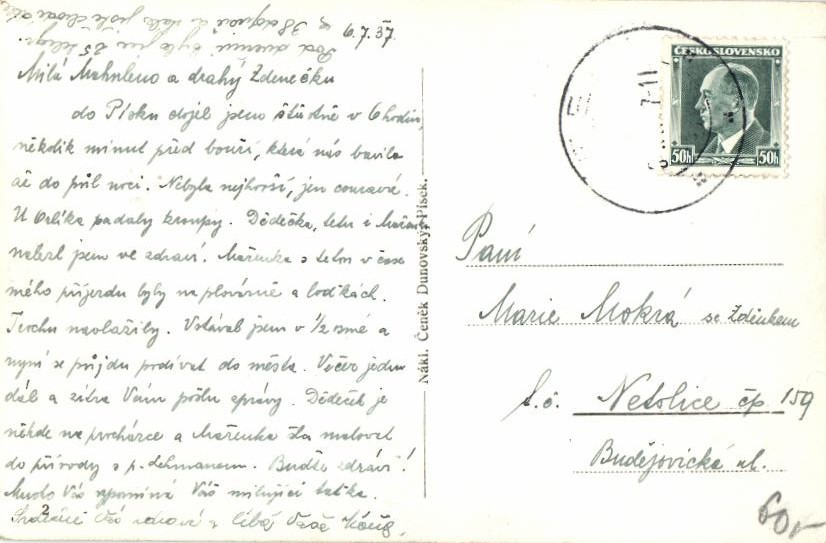 6.7.37
Milá Mahuleno a drahý Zdenečku
do Písku dojel jsem šťastně v 6 hodin,
několik minut před bouří, která nás bavila
až do půl noci. Nebyla nejhorší, jen couravá.
U Orlíka padaly kroupy. Dědečka, tetu i Mařenku
nalezl jsem ve zdraví. Mařenka s tetou v čase
mého příjezdu byly na plovárně a loďkách.
Trochu naolažily. Vstával jsem v ½ osmé a
nyní se půjdu podívat do města. Večer jedu
dál a zítra Vám pošlu zprávy. Dědeček je
někde na procházce a Mařenka šla malovat
do přírody s p. Lehmanem. Buďte zdrávi!
Mnoho Vás vzpomíná Váš milující tatka.
Srdečně Vás zdraví a líbá Vaše
Nákl. Čeněk Dunovský, Písek.
ČESKOSLOVENSKO
50h 50h
Paní
Marie Mokrá se Zdeňkem
t.č. Netolice čp 159
Budějovická ul.
60,-